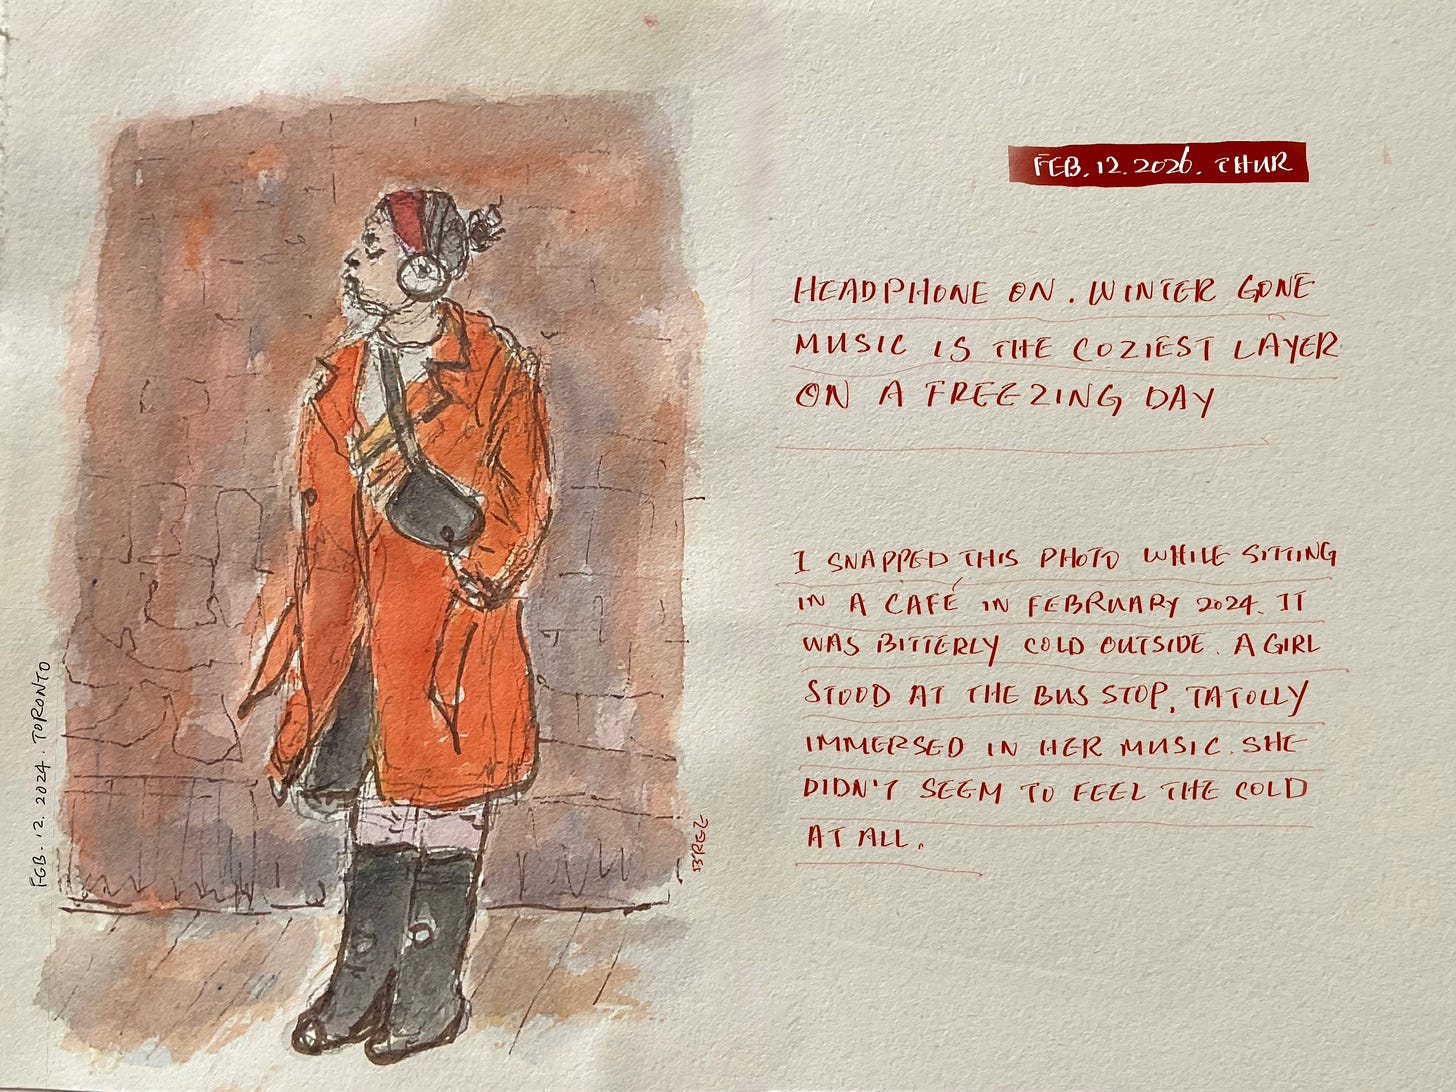 FEB. 12. 2026. THUR
HEADPHONE ON. WINTER GONE
MUSIC IS THE COZIEST LAYER
ON A FREEZING DAY
I SNAPPED THIS PHOTO WHILE SITTING
IN A CAFÉ IN FEBRUARY 2024. IT
WAS BITTERLY COLD OUTSIDE. A GIRL
STOOD AT THE BUS STOP, TATOLLY
IMMERSED IN HER MUSIC. SHE
DIDN'T SEEM TO FEEL THE COLD
AT ALL.
FEB. 12. 2024. TORONTO